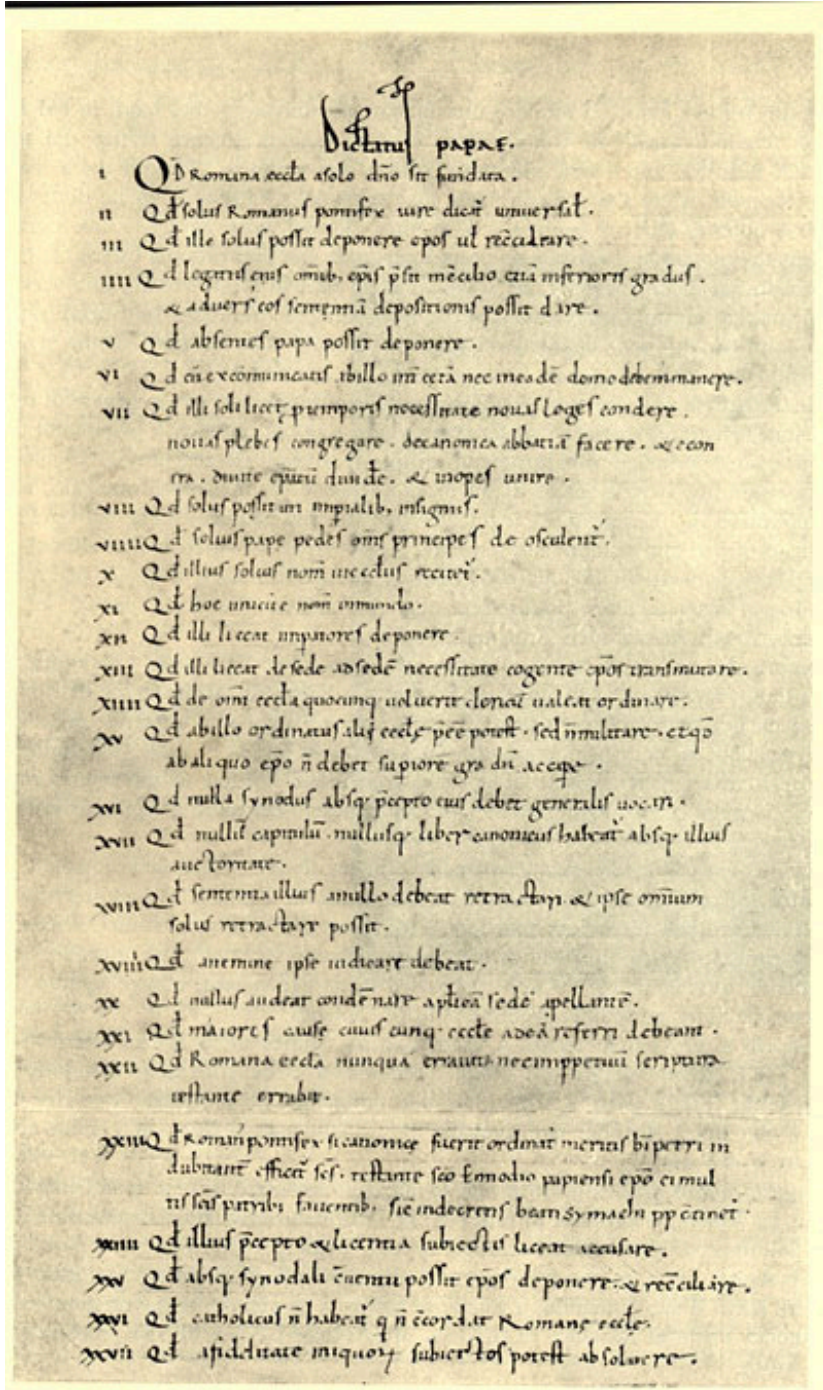 Dictatus papae.
i Qd Romana eccla a solo dno sit fundata.
ii Qd solus Romanus pontifex iure dicat universal.
iii Qd ille solus possit deponere epos ul recciliare.
iiii Qd legatus eius omib. epis psit in ccilio etia inferioris gradus.
& advers eos sententia depositionis possit dare.
v Qd absentes papa possit deponere.
vi Qd cu excommunicatis ab illo int cetera nec in eade domo debem manere.
vii Qd illi soli licet p temporis necessitate novas leges condere.
novas plebes congregare. de canonica abbatia facere. & econ
tra. divite epatu dividere. & inopes unire.
viii Qd solus possit uti impialib. insigniis.
viiii Qd solius pape pedes oms principes deosculent.
x Qd illius solius nom in ecclis recitet.
xi Qd hoc unicu e nom in mundo.
xii Qd illi liceat impatores deponere.
xiii Qd illi liceat de sede ad sede necessitate cogente epos transmutare.
xiiii Qd de omi eccla quocunq. voluerit clericu valeat ordinare.
xv Qd ab illo ordinatus alii eccle pee potest. sed n militare. et qd
ab aliquo epo n debet supiore gradu accipe.
xvi Qd nulla synodus absq. pcepto eius debet generalis vocari.
xvii Qd nullu capitulu. nullusq. liber canonicus habeat absq. illius
auctoritate.
xviii Qd sententia illius a nullo debeat retractari & ipse omium
solus retractare possit.
xviiii Qd a nemine ipse iudicare debeat.
xx Qd nullus audeat condenare aplica sede apellante.
xxi Qd maiores cause cuiuscunq. eccle ad ea referri debeant.
xxii Qd Romana eccla nunqua erravit nec imppetuu scriptura
testante errabit.
xxiii Qd Roman pontifex si canonice fuerit ordinat meritis bi petri in
dubitant efficit scs. testante sco Ennodio papiensi epo ei mul
tis scis patribs faventib. sic in decretis beati symachi pp ctinet.
xxiiii Qd illius pcepto & licentia subiectis liceat accusare.
xxv Qd absq. synodali cuentu possit epos deponere. & recciliare.
xxvi Qd catholicus n habeat q n ccordat Romane eccle.
xxvii Qd a fidelitate iniquor subiectos potest absolvere.